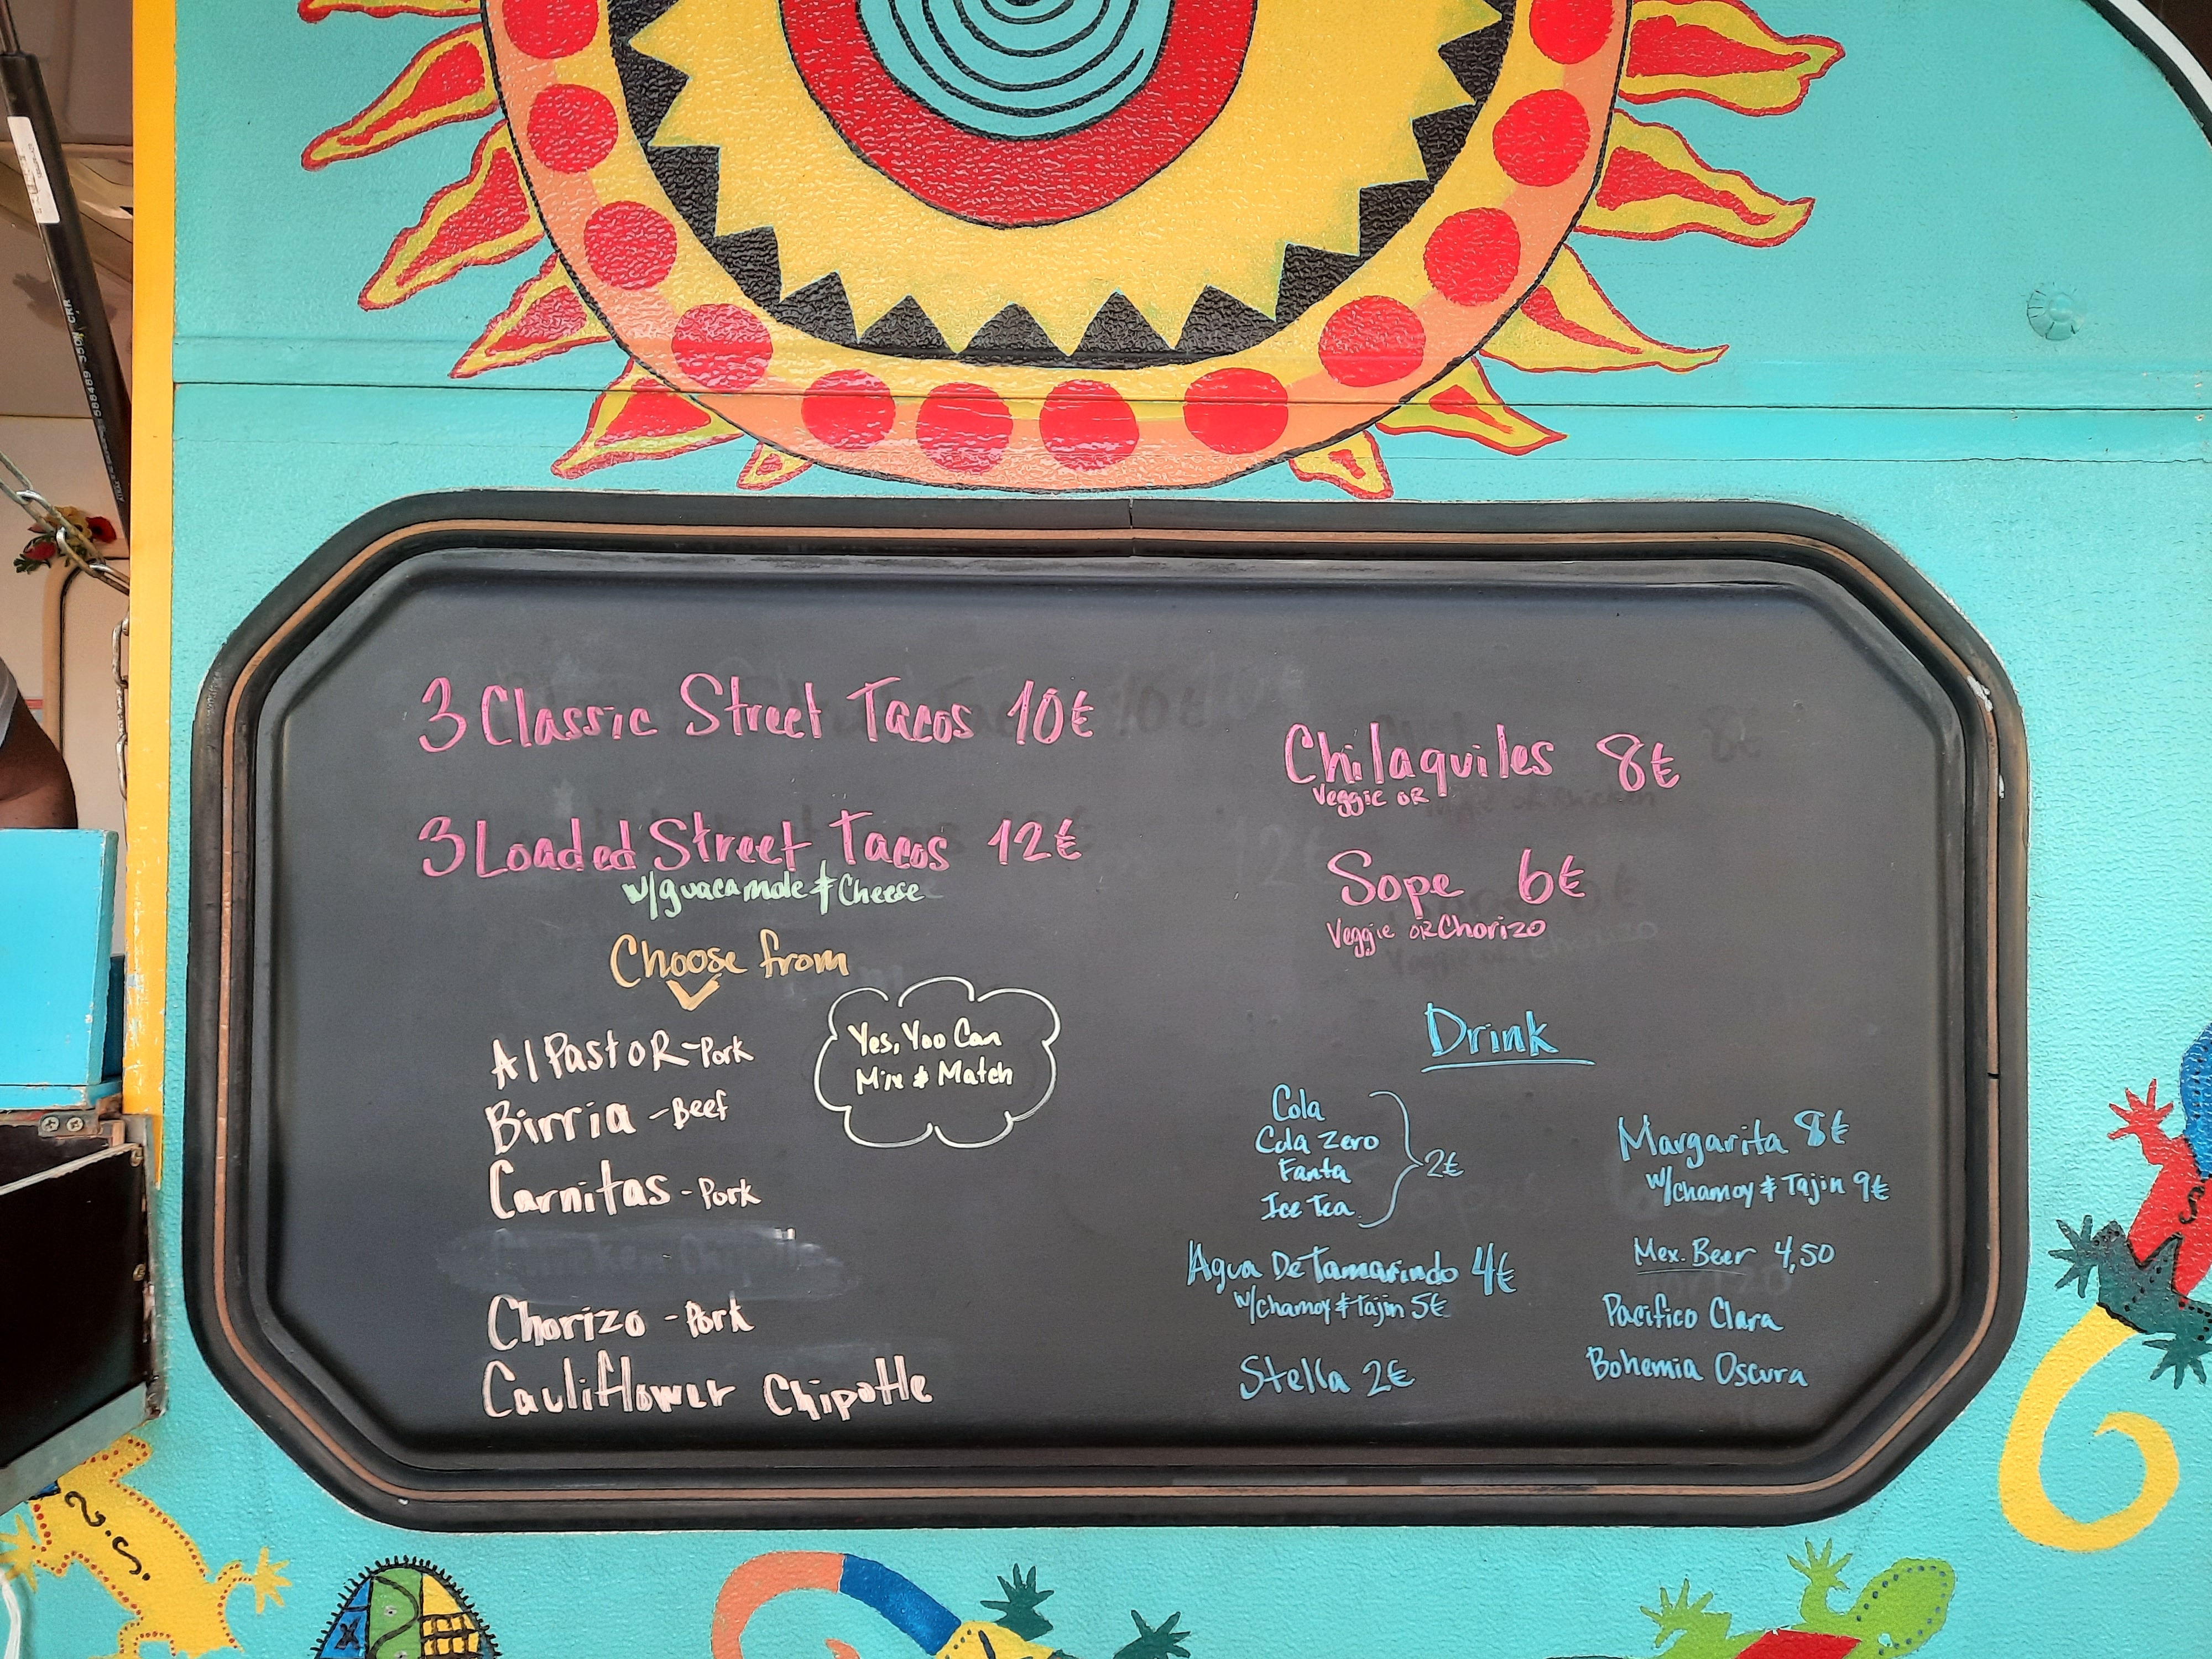 3 Classic Street Tacos 10€
3 Loaded Street Tacos 12€
w/guacamole & Cheese
Choose from
Al PastoR-Pork
Birria - Beef
Carnitas - Pork
Chorizo - Pork
Cauliflower Chipotle
Yes, You Can
Mix & Match
Chilaquiles 8€
Veggie OR
Sope 6€
Veggie OR Chorizo
Drink
Cola
Cola Zero
Fanta
Ice Tea
2€
Agua De Tamarindo 4€
w/chamoy & Tajin 5€
Stella 2€
Margarita 8€
w/chamoy & Tajin 9€
Mex. Beer 4,50
Pacifico Clara
Bohemia Oscura